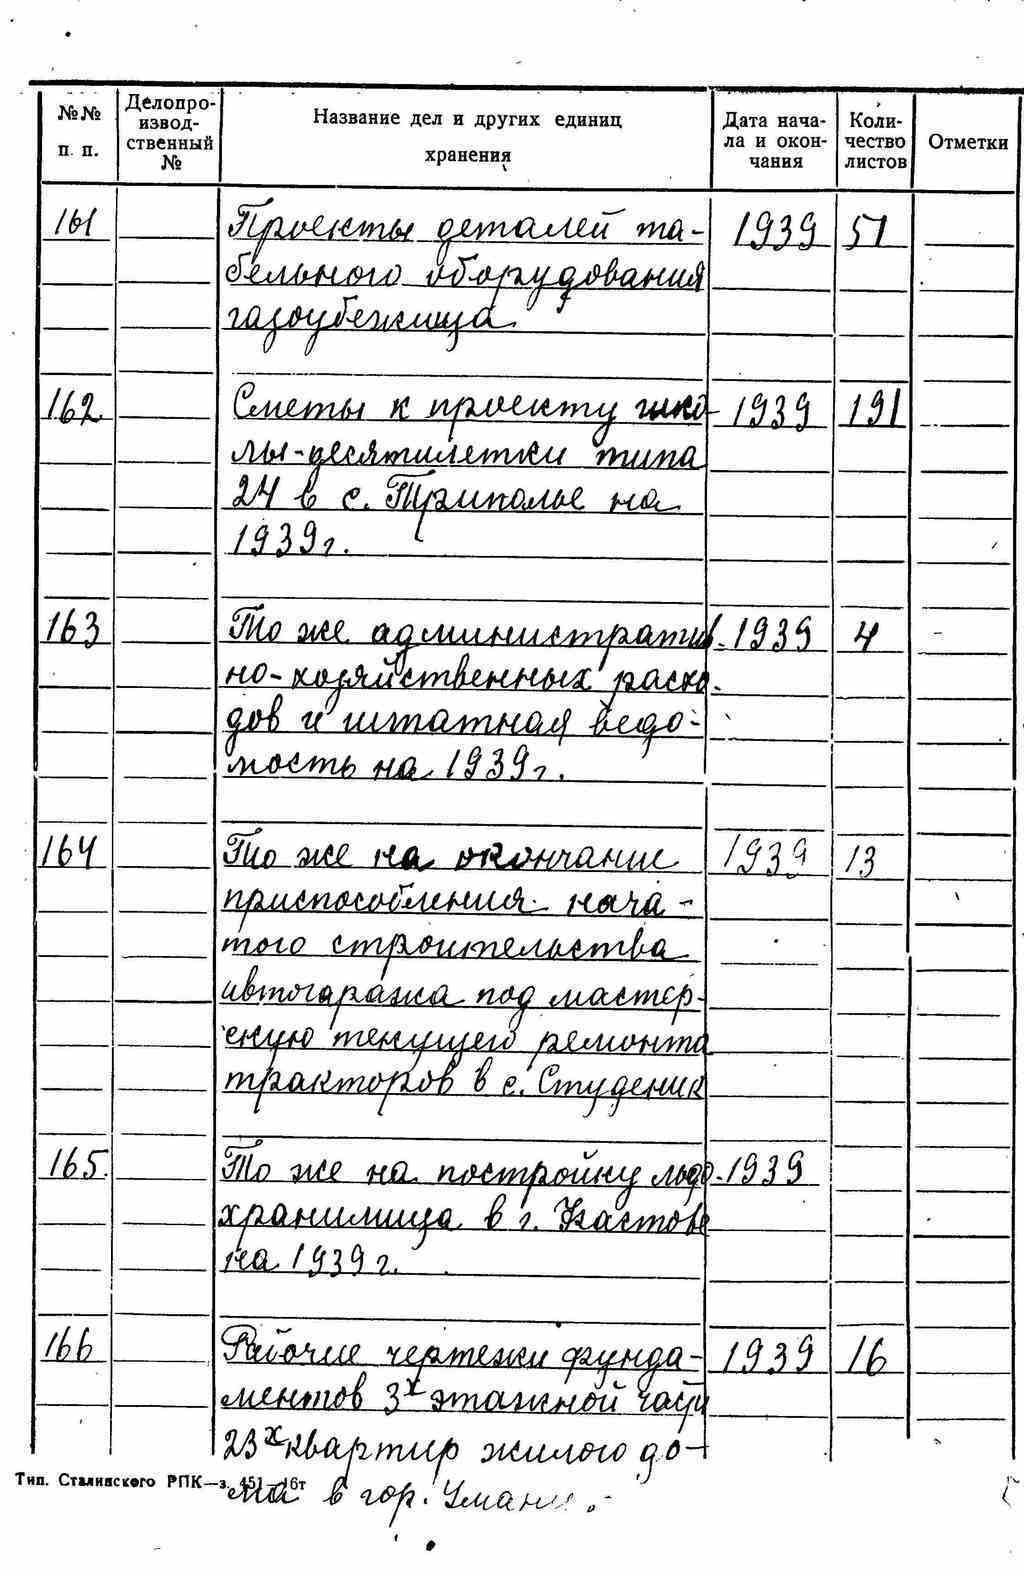 №№ п. п.
Делопро-
извод-
ственный
№
Название дел и других единиц
хранения
Дата нача-
ла и окон-
чания
Коли-
чество
листов
Отметки
161 Проекты деталей та- 1939 51
бельного оборудования
газоубежища.
162. Сметы к проекту шко- 1939 191
лы-десятилетки типа
24 в с. Триполье на
1939 г.
163 То же административ- 1939 4 -
но-хозяйственных расхо-
дов и штатная ведо-
мость на 1939 г.
164 То же на окончание 1939 13
приспособления нача-
того строительства
автогаража под мастер-
скую текущего ремонта
тракторов в с. Студеник
165. То же на постройку льдо- 1939
хранилища в г. Фастове
на 1939 г.
166 Рабочие чертежи фунда- 1939 16
ментов 3х этажной части
23х квартир жилого до-
ма в гор. Умани.
Тип. Сталинского РПК—з. 451—16т